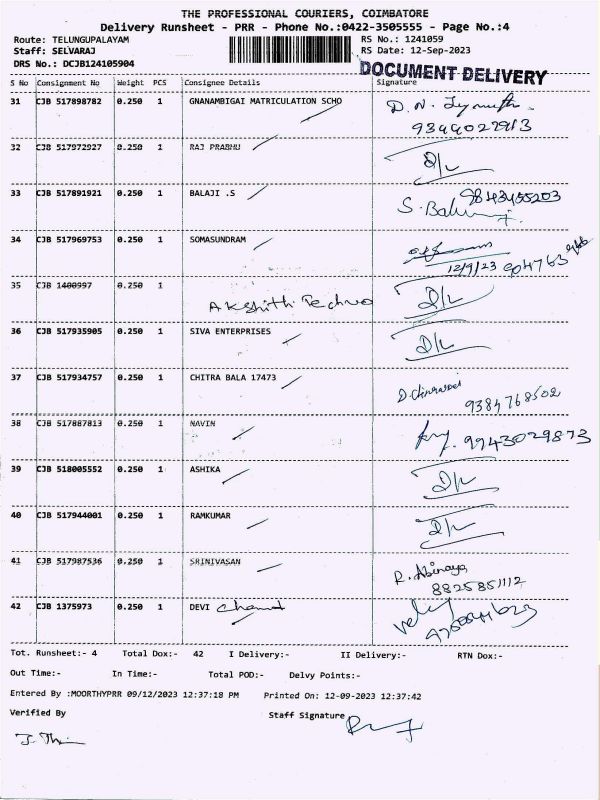 THE PROFESSIONAL COURIERS, COIMBATORE
Delivery Runsheet - PRR - Phone No.:0422-3505555 - Page No.:4
Route: TELUNGUPALAYAM RS No.: 1241059
Staff: SELVARAJ RS Date: 12-Sep-2023
DRS No.: DCJB124105904
DOCUMENT DELIVERY
S No Consignment No Weight PCS Consignee Details Signature
31 CJB 517898782 0.250 1 GNANAMBIGAI MATRICULATION SCHO D. N.
9344022913
32 CJB 517972927 0.250 1 RAJ PRABHU D/L
33 CJB 517891921 0.250 1 BALAJI .S 9843455203
S.
34 CJB 517969753 0.250 1 SOMASUNDRAM
12/9/23
35 CJB 1400997 0.250 1 Akshithi Techno D/L
36 CJB 517935905 0.250 1 SIVA ENTERPRISES D/L
37 CJB 517934757 0.250 1 CHITRA BALA 17473
9384768502
38 CJB 517887813 0.250 1 NAVIN 9943029873
39 CJB 518005552 0.250 1 ASHIKA D/L
40 CJB 517944001 0.250 1 RAMKUMAR D/L
41 CJB 517987536 0.250 1 SRINIVASAN R. Abinaya
8825851112
42 CJB 1375973 0.250 1 DEVI Chand
Tot. Runsheet:- 4 Total Dox:- 42 I Delivery:- II Delivery:- RTN Dox:-
Out Time:- In Time:- Total POD:- Delvy Points:-
Entered By :MOORTHYPRR 09/12/2023 12:37:18 PM Printed On: 12-09-2023 12:37:42
Verified By Staff Signature